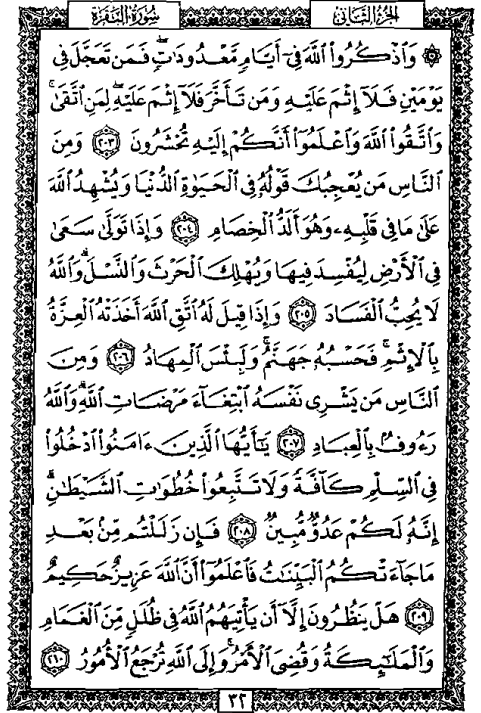 سُورَةُ البَقَرَةِ
الجُزءُ الثَّانِي
۞ وَٱذْكُرُوا۟ ٱللَّهَ فِىٓ أَيَّامٍ مَّعْدُودَٰتٍ ۚ فَمَن تَعَجَّلَ فِى
يَوْمَيْنِ فَلَآ إِثْمَ عَلَيْهِ وَمَن تَأَخَّرَ فَلَآ إِثْمَ عَلَيْهِ ۚ لِمَنِ ٱتَّقَىٰ ۗ
وَٱتَّقُوا۟ ٱللَّهَ وَٱعْلَمُوٓا۟ أَنَّكُمْ إِلَيْهِ تُحْشَرُونَ ۝٢٠٣ وَمِنَ
ٱلنَّاسِ مَن يُعْجِبُكَ قَوْلُهُۥ فِى ٱلْحَيَوٰةِ ٱلدُّنْيَا وَيُشْهِدُ ٱللَّهَ
عَلَىٰ مَا فِى قَلْبِهِۦ وَهُوَ أَلَدُّ ٱلْخِصَامِ ۝٢٠٤ وَإِذَا تَوَلَّىٰ سَعَىٰ
فِى ٱلْأَرْضِ لِيُفْسِدَ فِيهَا وَيُهْلِكَ ٱلْحَرْثَ وَٱلنَّسْلَ ۗ وَٱللَّهُ
لَا يُحِبُّ ٱلْفَسَادَ ۝٢٠٥ وَإِذَا قِيلَ لَهُ ٱتَّقِ ٱللَّهَ أَخَذَتْهُ ٱلْعِزَّةُ
بِٱلْإِثْمِ ۚ فَحَسْبُهُۥ جَهَنَّمُ ۚ وَلَبِئْسَ ٱلْمِهَادُ ۝٢٠٦ وَمِنَ
ٱلنَّاسِ مَن يَشْرِى نَفْسَهُ ٱبْتِغَآءَ مَرْضَاتِ ٱللَّهِ ۗ وَٱللَّهُ
رَءُوفٌۢ بِٱلْعِبَادِ ۝٢٠٧ يَٰٓأَيُّهَا ٱلَّذِينَ ءَامَنُوا۟ ٱدْخُلُوا۟
فِى ٱلسِّلْمِ كَآفَّةً وَلَا تَتَّبِعُوا۟ خُطُوَٰتِ ٱلشَّيْطَٰنِ ۚ
إِنَّهُۥ لَكُمْ عَدُوٌّ مُّبِينٌ ۝٢٠٨ فَإِن زَلَلْتُم مِّنۢ بَعْدِ
مَا جَآءَتْكُمُ ٱلْبَيِّنَٰتُ فَٱعْلَمُوٓا۟ أَنَّ ٱللَّهَ عَزِيزٌ حَكِيمٌ
۝٢٠٩ هَلْ يَنظُرُونَ إِلَّآ أَن يَأْتِيَهُمُ ٱللَّهُ فِى ظُلَلٍ مِّنَ ٱلْغَمَامِ
وَٱلْمَلَٰٓئِكَةُ وَقُضِىَ ٱلْأَمْرُ ۚ وَإِلَى ٱللَّهِ تُرْجَعُ ٱلْأُمُورُ ۝٢١٠
٣٢